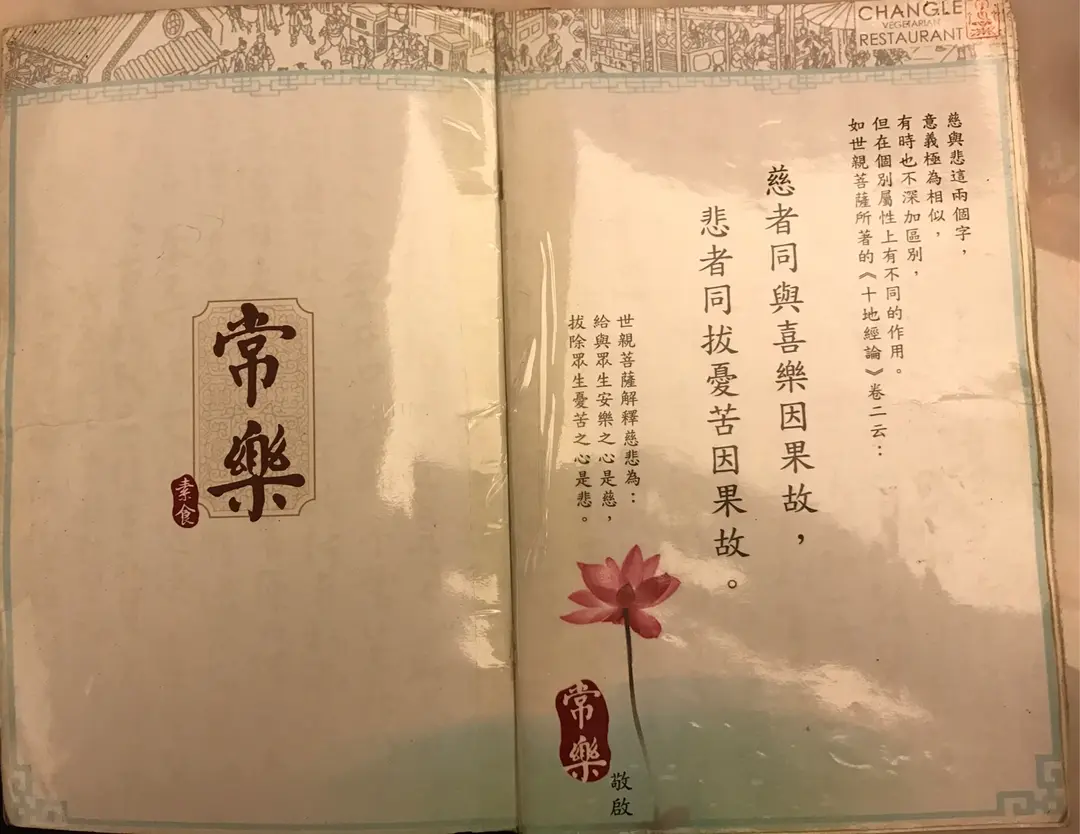 CHANGLE
VEGETARIAN
RESTAURANT
慈與悲這兩個字，
意義極為相似，
有時也不深加區別，
但在個別屬性上有不同的作用。
如世親菩薩所著的《十地經論》卷二云：
慈者同與喜樂因果故，
悲者同拔憂苦因果故。
世親菩薩解釋慈悲為：
給與眾生安樂之心是慈，
拔除眾生憂苦之心是悲。
常樂
敬啟
常樂
素食